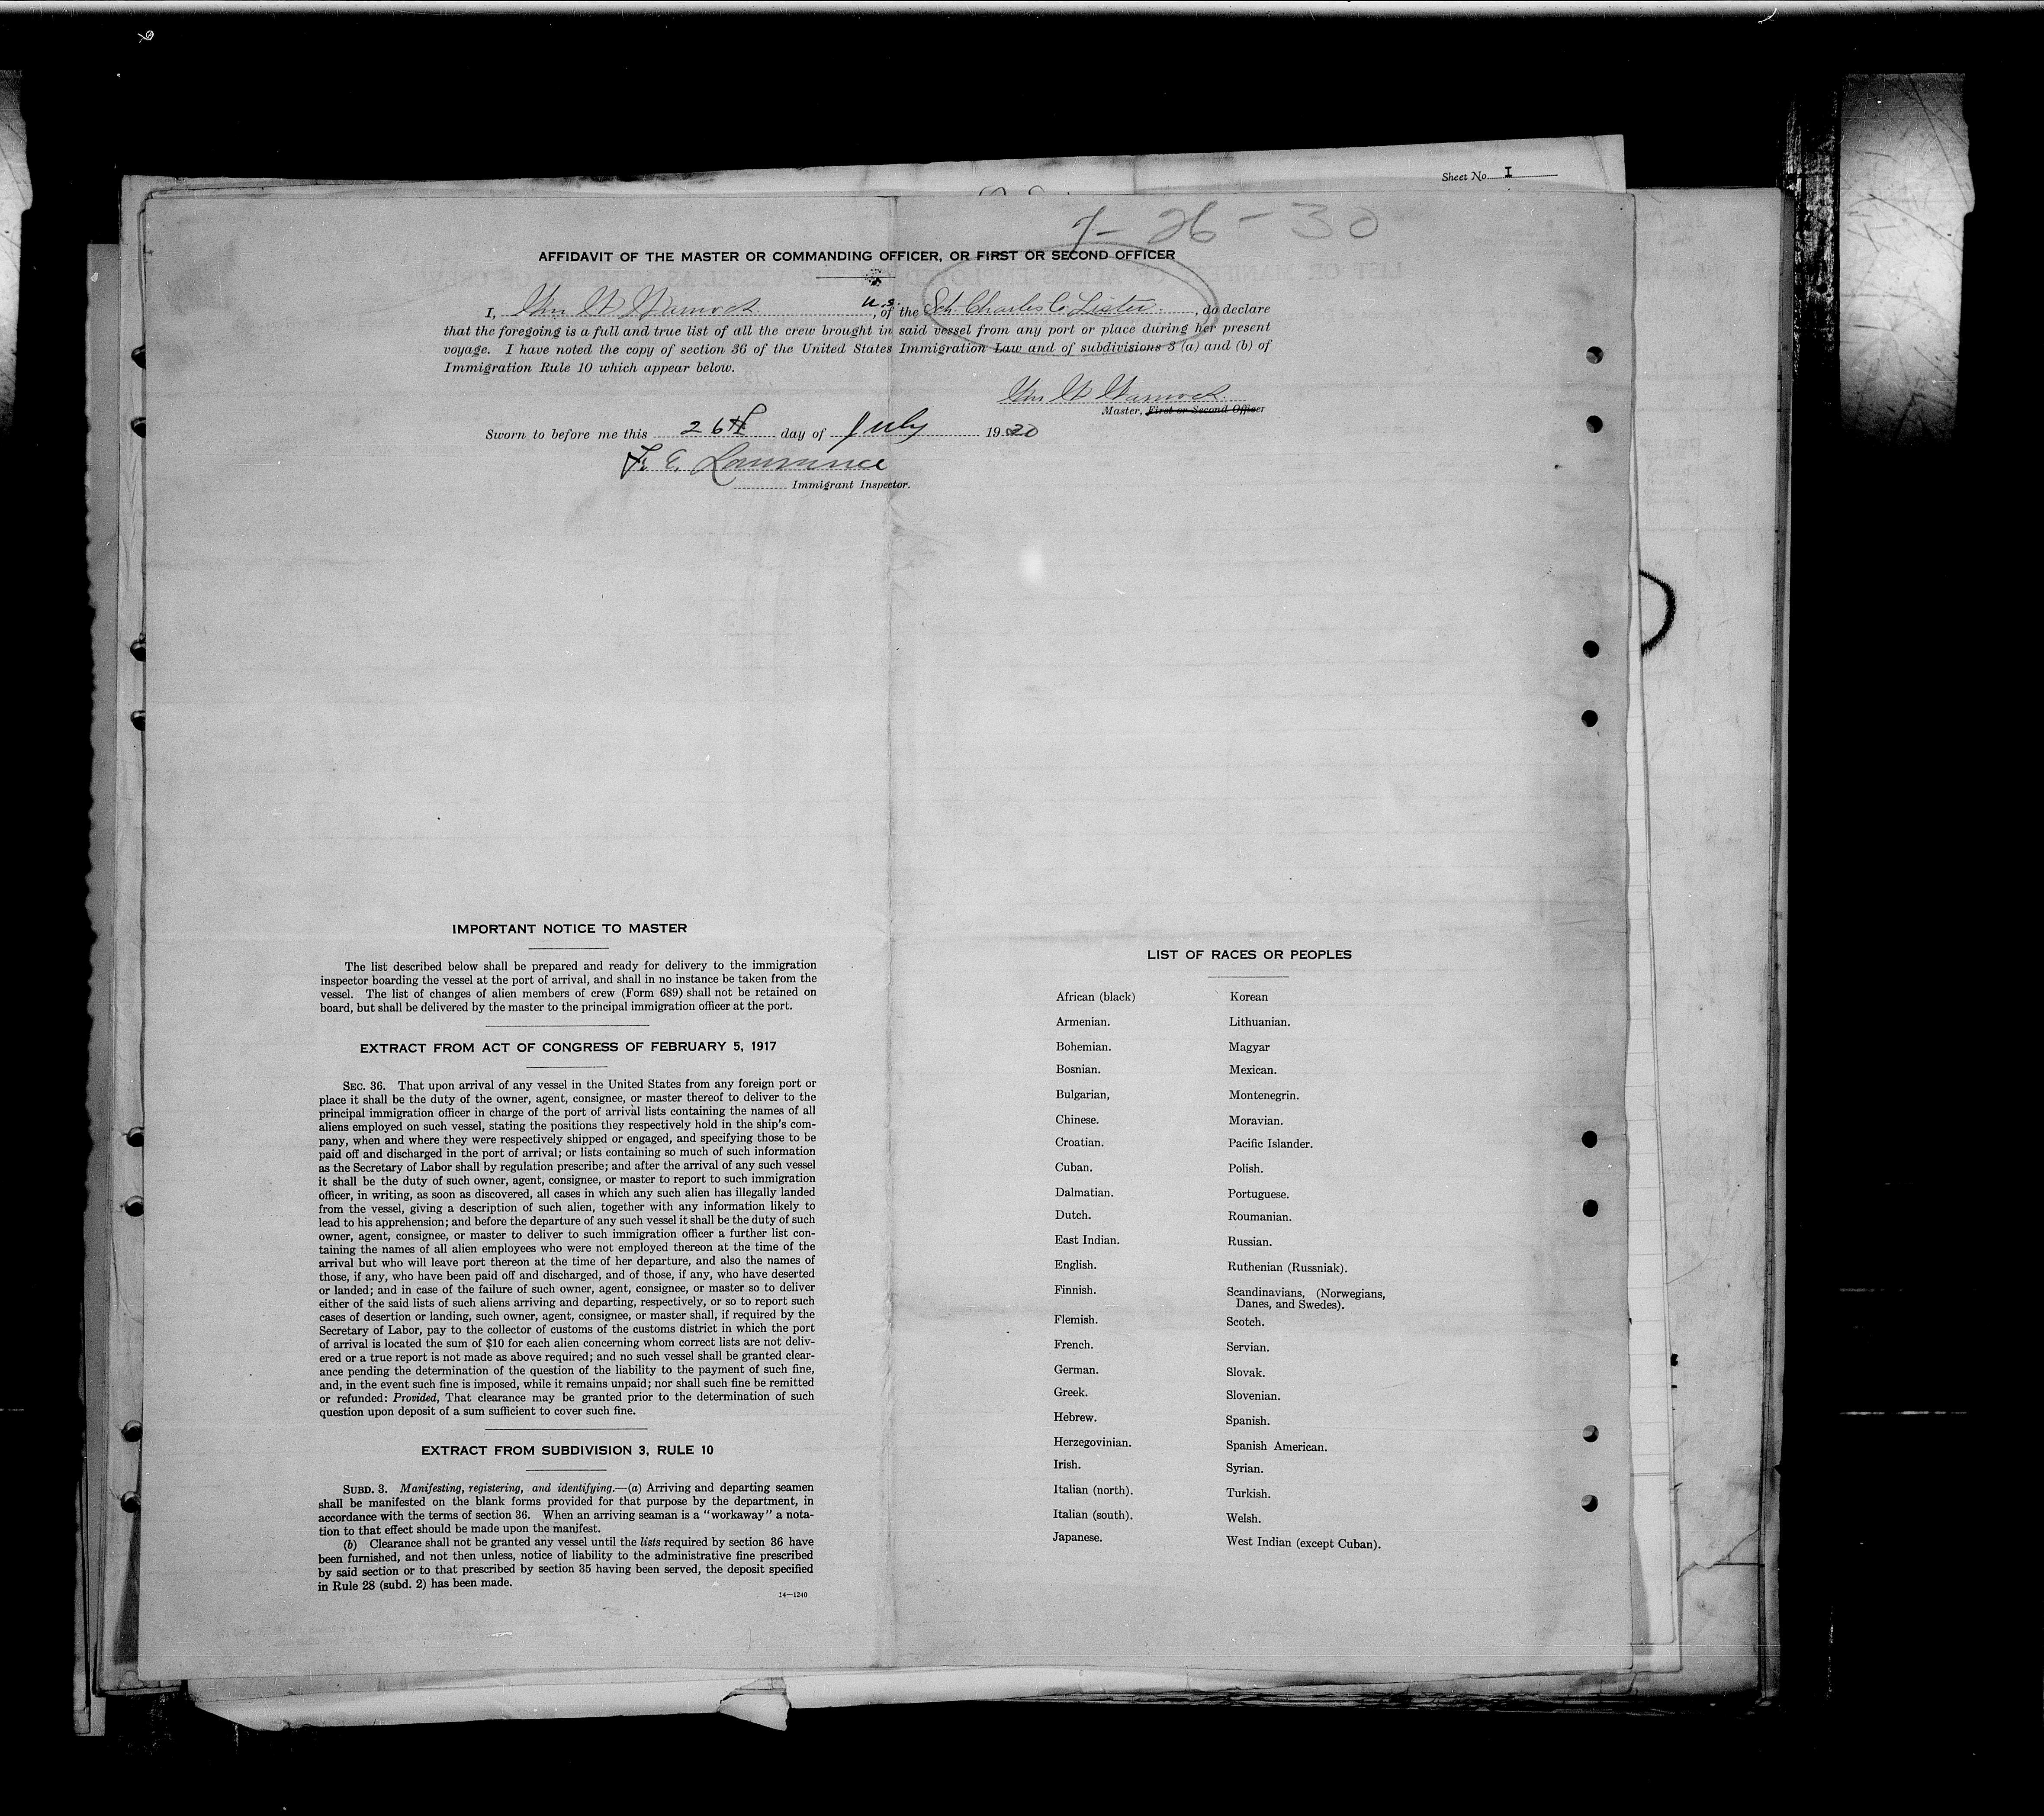 Sheet No. I
7-26-30
AFFIDAVIT OF THE MASTER OR COMMANDING OFFICER, OR FIRST OR SECOND OFFICER
I, Wm W , U.S. of the Sch Charles C. Lister, do declare
that the foregoing is a full and true list of all the crew brought in said vessel from any port or place during her present
voyage. I have noted the copy of section 36 of the United States Immigration Law and of subdivisions 3 (a) and (b) of
Immigration Rule 10 which appear below.
Wm W
Master, First or Second Officer
Sworn to before me this 26th day of July 19
F. E. Lawrence
Immigrant Inspector.
IMPORTANT NOTICE TO MASTER
The list described below shall be prepared and ready for delivery to the immigration
inspector boarding the vessel at the port of arrival, and shall in no instance be taken from the
vessel. The list of changes of alien members of crew (Form 689) shall not be retained on
board, but shall be delivered by the master to the principal immigration officer at the port.
EXTRACT FROM ACT OF CONGRESS OF FEBRUARY 5, 1917
SEC. 36. That upon arrival of any vessel in the United States from any foreign port or
place it shall be the duty of the owner, agent, consignee, or master thereof to deliver to the
principal immigration officer in charge of the port of arrival lists containing the names of all
aliens employed on such vessel, stating the positions they respectively hold in the ship's com-
pany, when and where they were respectively shipped or engaged, and specifying those to be
paid off and discharged in the port of arrival; or lists containing so much of such information
as the Secretary of Labor shall by regulation prescribe; and after the arrival of any such vessel
it shall be the duty of such owner, agent, consignee, or master to report to such immigration
officer, in writing, as soon as discovered, all cases in which any such alien has illegally landed
from the vessel, giving a description of such alien, together with any information likely to
lead to his apprehension; and before the departure of any such vessel it shall be the duty of such
owner, agent, consignee, or master to deliver to such immigration officer a further list con-
taining the names of all alien employees who were not employed thereon at the time of the
arrival but who will leave port thereon at the time of her departure, and also the names of
those, if any, who have been paid off and discharged, and of those, if any, who have deserted
or landed; and in case of the failure of such owner, agent, consignee, or master so to deliver
either of the said lists of such aliens arriving and departing, respectively, or so to report such
cases of desertion or landing, such owner, agent, consignee, or master shall, if required by the
Secretary of Labor, pay to the collector of customs of the customs district in which the port
of arrival is located the sum of $10 for each alien concerning whom correct lists are not deliv-
ered or a true report is not made as above required; and no such vessel shall be granted clear-
ance pending the determination of the question of the liability to the payment of such fine,
and, in the event such fine is imposed, while it remains unpaid; nor shall such fine be remitted
or refunded: Provided, That clearance may be granted prior to the determination of such
question upon deposit of a sum sufficient to cover such fine.
EXTRACT FROM SUBDIVISION 3, RULE 10
SUBD. 3. Manifesting, registering, and identifying.—(a) Arriving and departing seamen
shall be manifested on the blank forms provided for that purpose by the department, in
accordance with the terms of section 36. When an arriving seaman is a "workaway" a nota-
tion to that effect should be made upon the manifest.
(b) Clearance shall not be granted any vessel until the lists required by section 36 have
been furnished, and not then unless, notice of liability to the administrative fine prescribed
by said section or to that prescribed by section 35 having been served, the deposit specified
in Rule 28 (subd. 2) has been made.
14—1240
LIST OF RACES OR PEOPLES
African (black)
Armenian.
Bohemian.
Bosnian.
Bulgarian,
Chinese.
Croatian.
Cuban.
Dalmatian.
Dutch.
East Indian.
English.
Finnish.
Flemish.
French.
German.
Greek.
Hebrew.
Herzegovinian.
Irish.
Italian (north).
Italian (south).
Japanese.
Korean
Lithuanian.
Magyar
Mexican.
Montenegrin.
Moravian.
Pacific Islander.
Polish.
Portuguese.
Roumanian.
Russian.
Ruthenian (Russniak).
Scandinavians, (Norwegians,
Danes, and Swedes).
Scotch.
Servian.
Slovak.
Slovenian.
Spanish.
Spanish American.
Syrian.
Turkish.
Welsh.
West Indian (except Cuban).